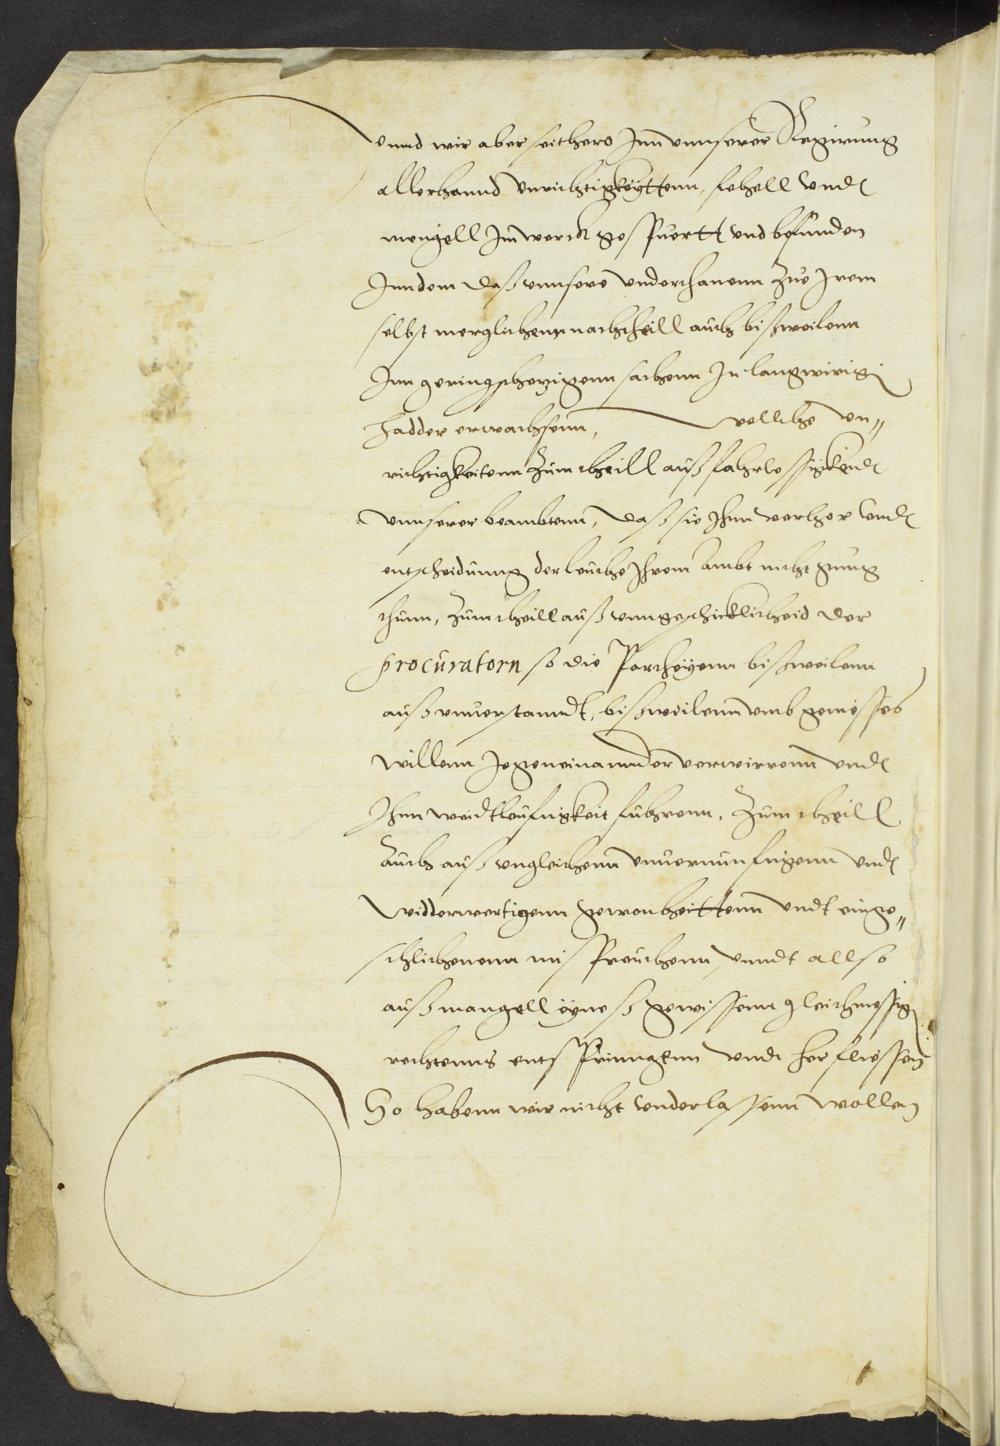 Vnnd wir aber seithero Inn vnnserer Regirung
allerhannd vnrichtigkeyttenn, fehell vnd
mengell Im werck gespuertt vnd befunden
Inn dem daß vnnsere vnderthanenn zue Irem
selbst merglichenn nachtheill auch bißweilenn
Inn geringschetzigenn sachenn In langwirig
hadder erwachsenn, wellche vn„
richtigkeitenn zum theill auß fahrlessigkeidt
vnnserer beambtenn, daß sie Ihnn verhor vnd
entscheidunng der leuthe Ihrem Ambt nicht gnug
thunn, zum theill auß vnngeschicklicheid der
procuratorn so die Partheyenn bißweilenn
auß vnuerstanndt, bißweilenn vmb geniesses
willenn Jegeneinannder verwirrenn vnd
Ihnn weidtleufigkeit fuhrenn, Zum theill
auch auß vngleichenn vnuernunfftigenn vnd
widderwertigenn gewonheittenn vndt einge„
schlichenenn misspreuchenn, vnndt allso
auß mangell eyneß gewissenn gleichmessig
rechtenns entspringenn vnd herfliessen
So habenn wir nicht vnderlassenn wollen